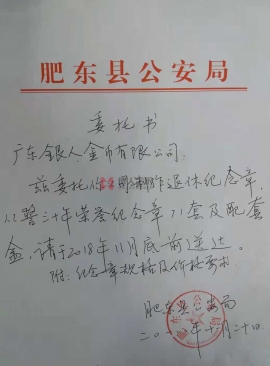 肥东县公安局
委托书
广东银人金币有限公司:
兹委托你 制作退休纪念章,
从警三十年荣誉纪念章71套及配套
盒,请于2018年11月底前送达。
附:纪念章规格及价格要求
肥东县公安局
二〇一 年十 月二十日